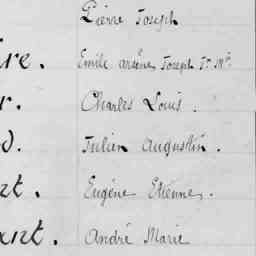 Pierre Joseph
re. Emile arsène Joseph Jn Mie
r. Charles Louis.
d. Julien Augustin.
et. Eugène Etienne.
ext. André Marie